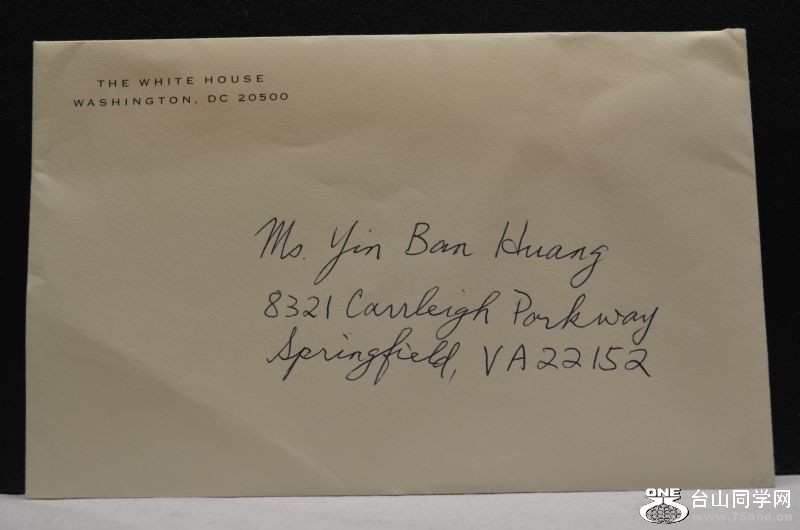 THE WHITE HOUSE
WASHINGTON, DC 20500
Ms. Yin Ban Huang
8321 Carrleigh Parkway
Springfield, VA 22152
ONE 台山同学网
www.75one.cn